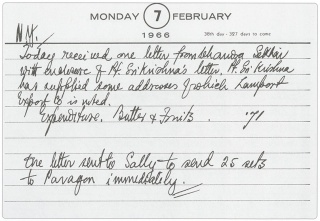 MONDAY 7 FEBRUARY
1966 38th day - 327 days to come
N.M.
Today received one letter from
with enclosure of Pt. Sri Krishna's letter. Pt. Sri Krishna
has supplied some addresses of which Lamport
Export Co is noted.
Expenditure. Butter & Fruits . '71
One letter sent to Sally - to send 25 sets
to Paragon immediately.